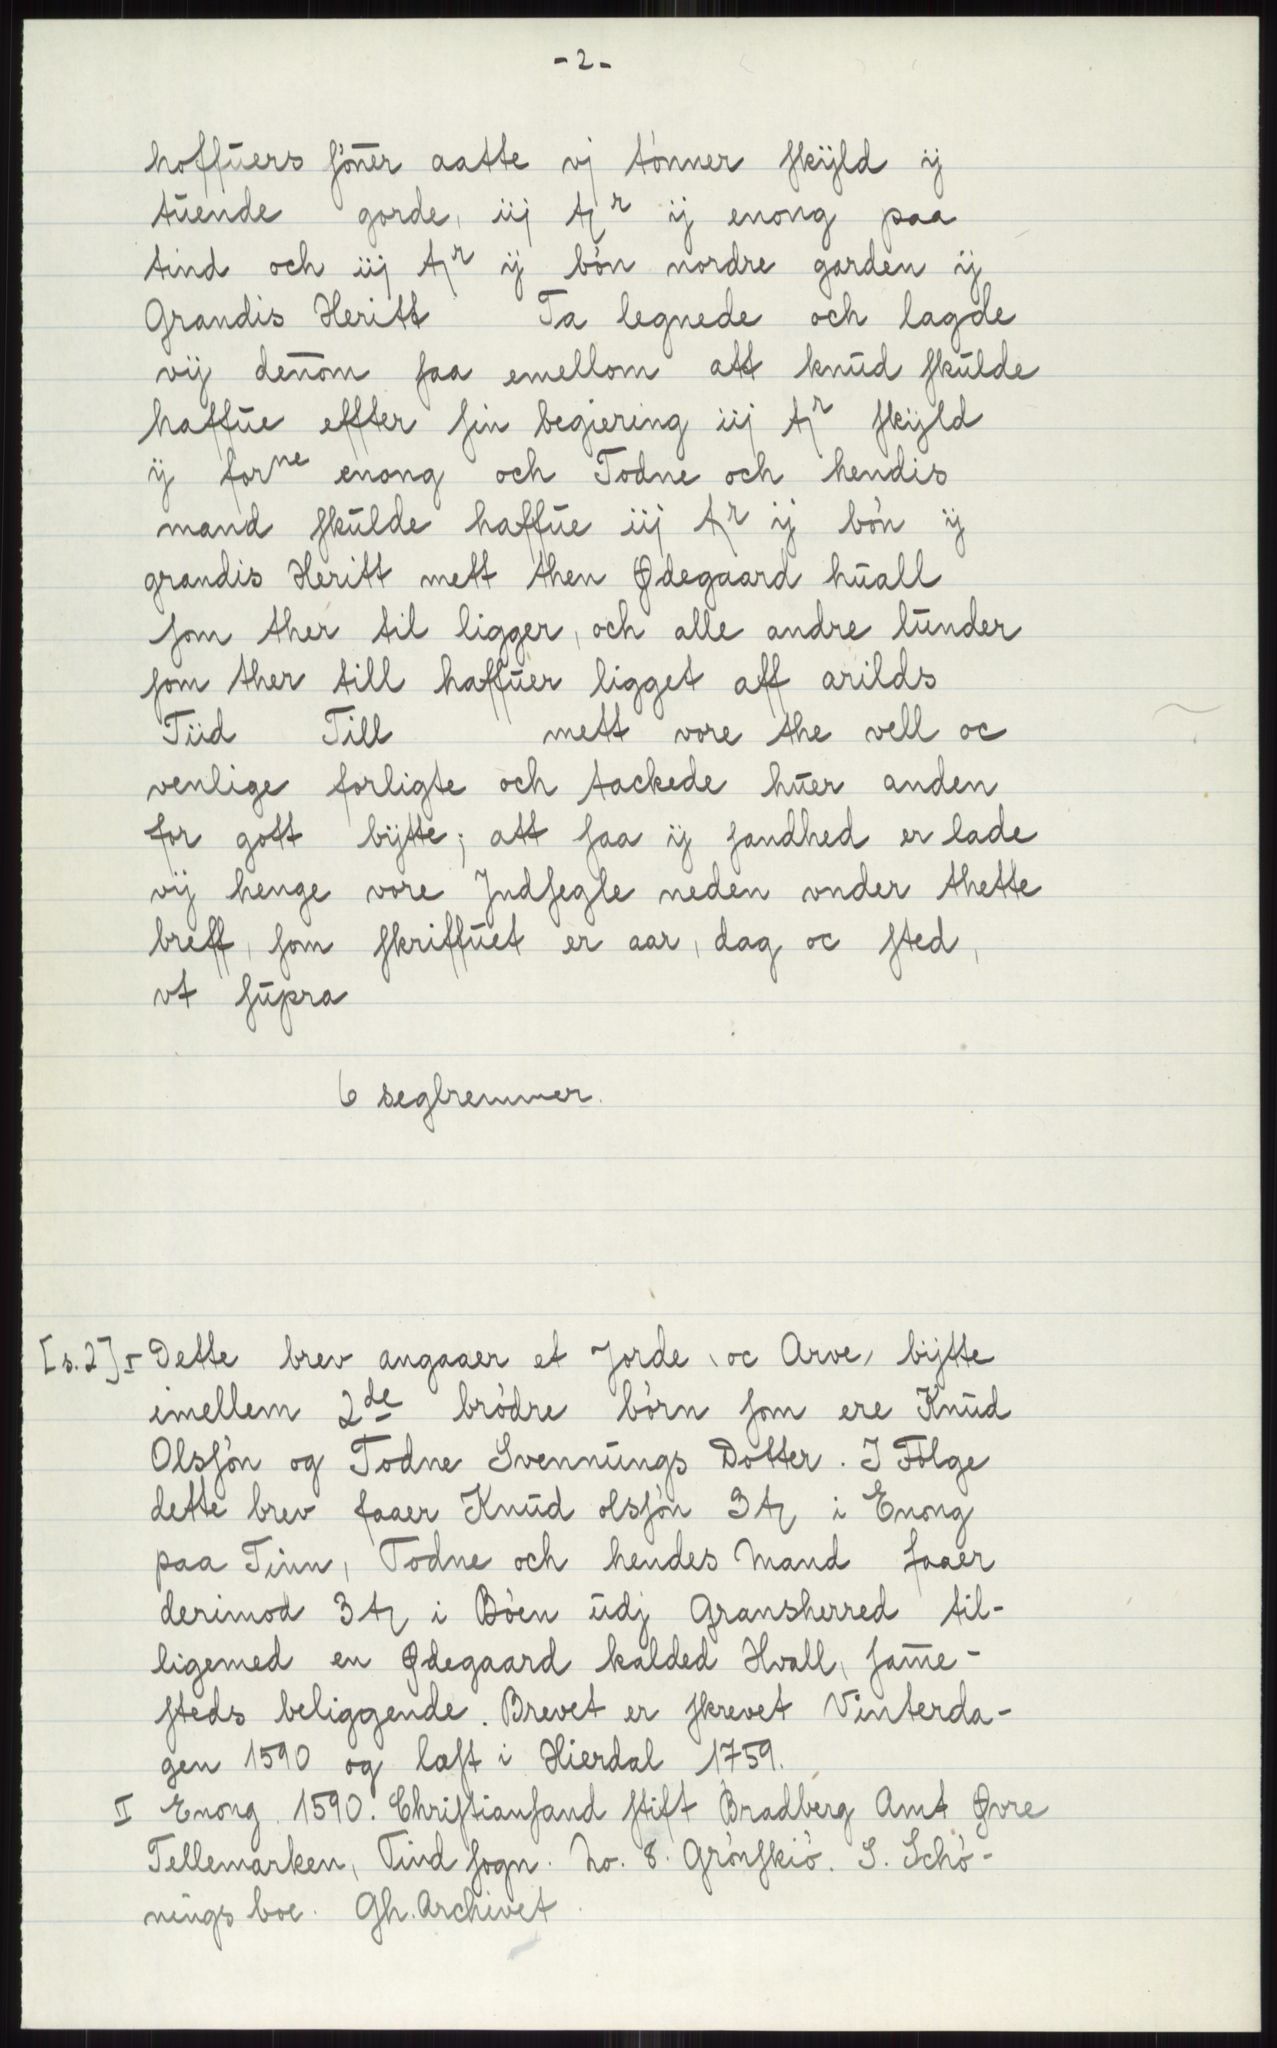 -2-
hoffuers sönner aatte vj tönner skÿld ij
tuende gorde, iij tr ij enong paa
tind och iij tr ij bön nordre garden ij
Grandis Heritt Ta legnede och lagde
vij denom saa emellom att knud skulde
haffue effter sin begiering iij tr skÿld
ij forne enong och Todne och hendis
mand skulde haffue iij tr ij bön ij
grandis Heritt mett then Ødegaard huall
som ther til ligger, och alle andre lunder
som ther till haffuer ligget aff arilds
Tiid Till mett vore the vell oc
venlige forligte och tackede huer anden
for gott bÿtte; att saa ij sandhed er lade
vij henge vore Jndsegle neden vnder thette
breff, som skriffuet er aar, dag oc sted,
vt supra
6 seglremmer.
[s.2] I Dette brev angaaer et Jorde, oc Arve, bÿtte
imellem 2de brödre börn som ere Knud
Olssön og Todne Svennungs Dotter. I Fölge
dette brev faaer Knud olssön 3 t i Enong
paa Tinn, Todne och hendes Mand faaer
derimod 3 t i Böen udj Gransherred til-
ligemed en Ødegaard kalded Hvall, samme-
steds beliggende. Brevet er skrevet Vinterda-
gen 1590 og læst i Hierdal 1759.
II Enong 1590. Christiansand stift Bradberg Amt Øvre
Tellemarken, Tind sogn. No. 8. Grönskiö. S. Schö-
nings boe. Gh. Archivet.